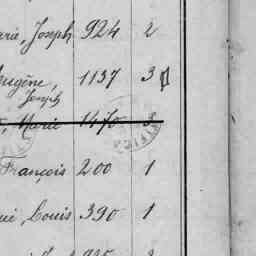 arie, Joseph 924 2
Eugène, 1137 3
Joseph
Marie 1470 3
François 200 1
Louis 390 1